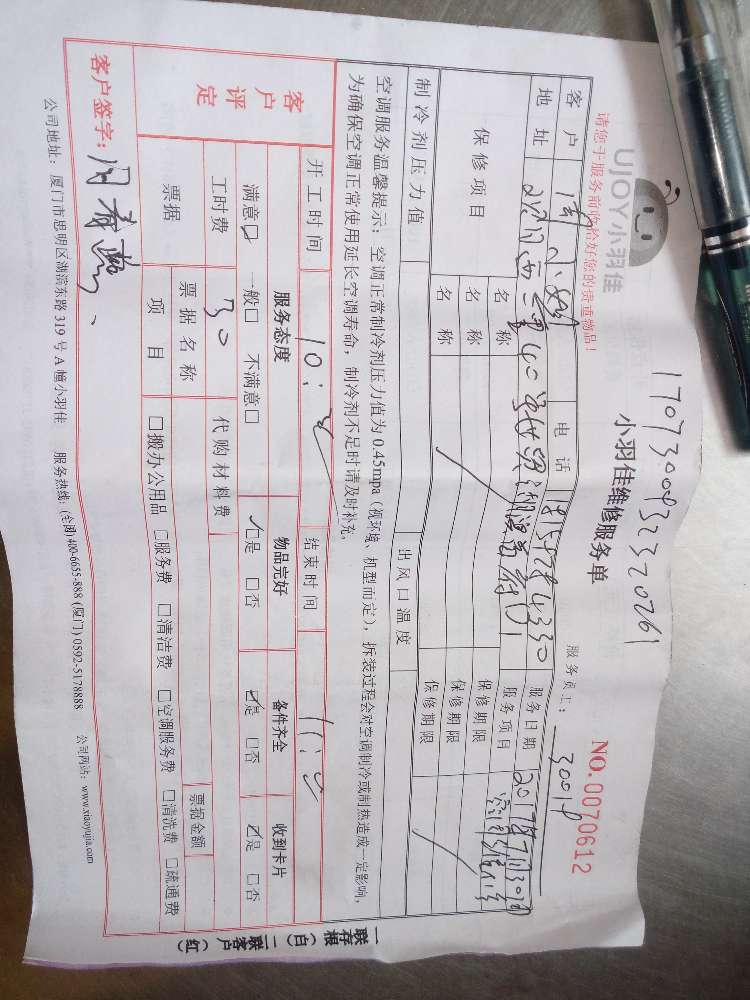 1707300832320761
UJOY小羽佳
小羽佳维修服务单
NO.0070612
请您于服务前收拾好您的贵重物品!
服务员工: 30018
客户 电话 服务日期
地址 服务项目
保修项目 名称 保修期限
名称 保修期限
名称 保修期限
制冷剂压力值 出风口温度
空调服务温馨提示: 空调正常制冷剂压力值为 0.45mpa (视环境、机型而定), 拆装过程会对空调制冷或制热造成一定影响,
为确保空调正常使用延长空调寿命, 制冷剂不足时请及时补充。
开工时间 10: 结束时间 11:
客户评定 服务态度 物品完好 备件齐全 收到卡片
满意☑ 一般□ 不满意□ ☑是 □否 ☑是 □否 ☑是 □否
工时费 30 代购材料费
票据 票据名称 票据金额
项目 □搬办公用品 □服务费 □清洁费 □空调服务费 □清洗费 □疏通费
客户签字:
公司地址: 厦门市思明区湖滨东路 319 号 A 幢小羽佳 服务热线: (全国) 400-6655-888 (厦门) 0592-5178888 公司网站: www.xiaoyujia.com
一联存根(白) 二联客户(红)